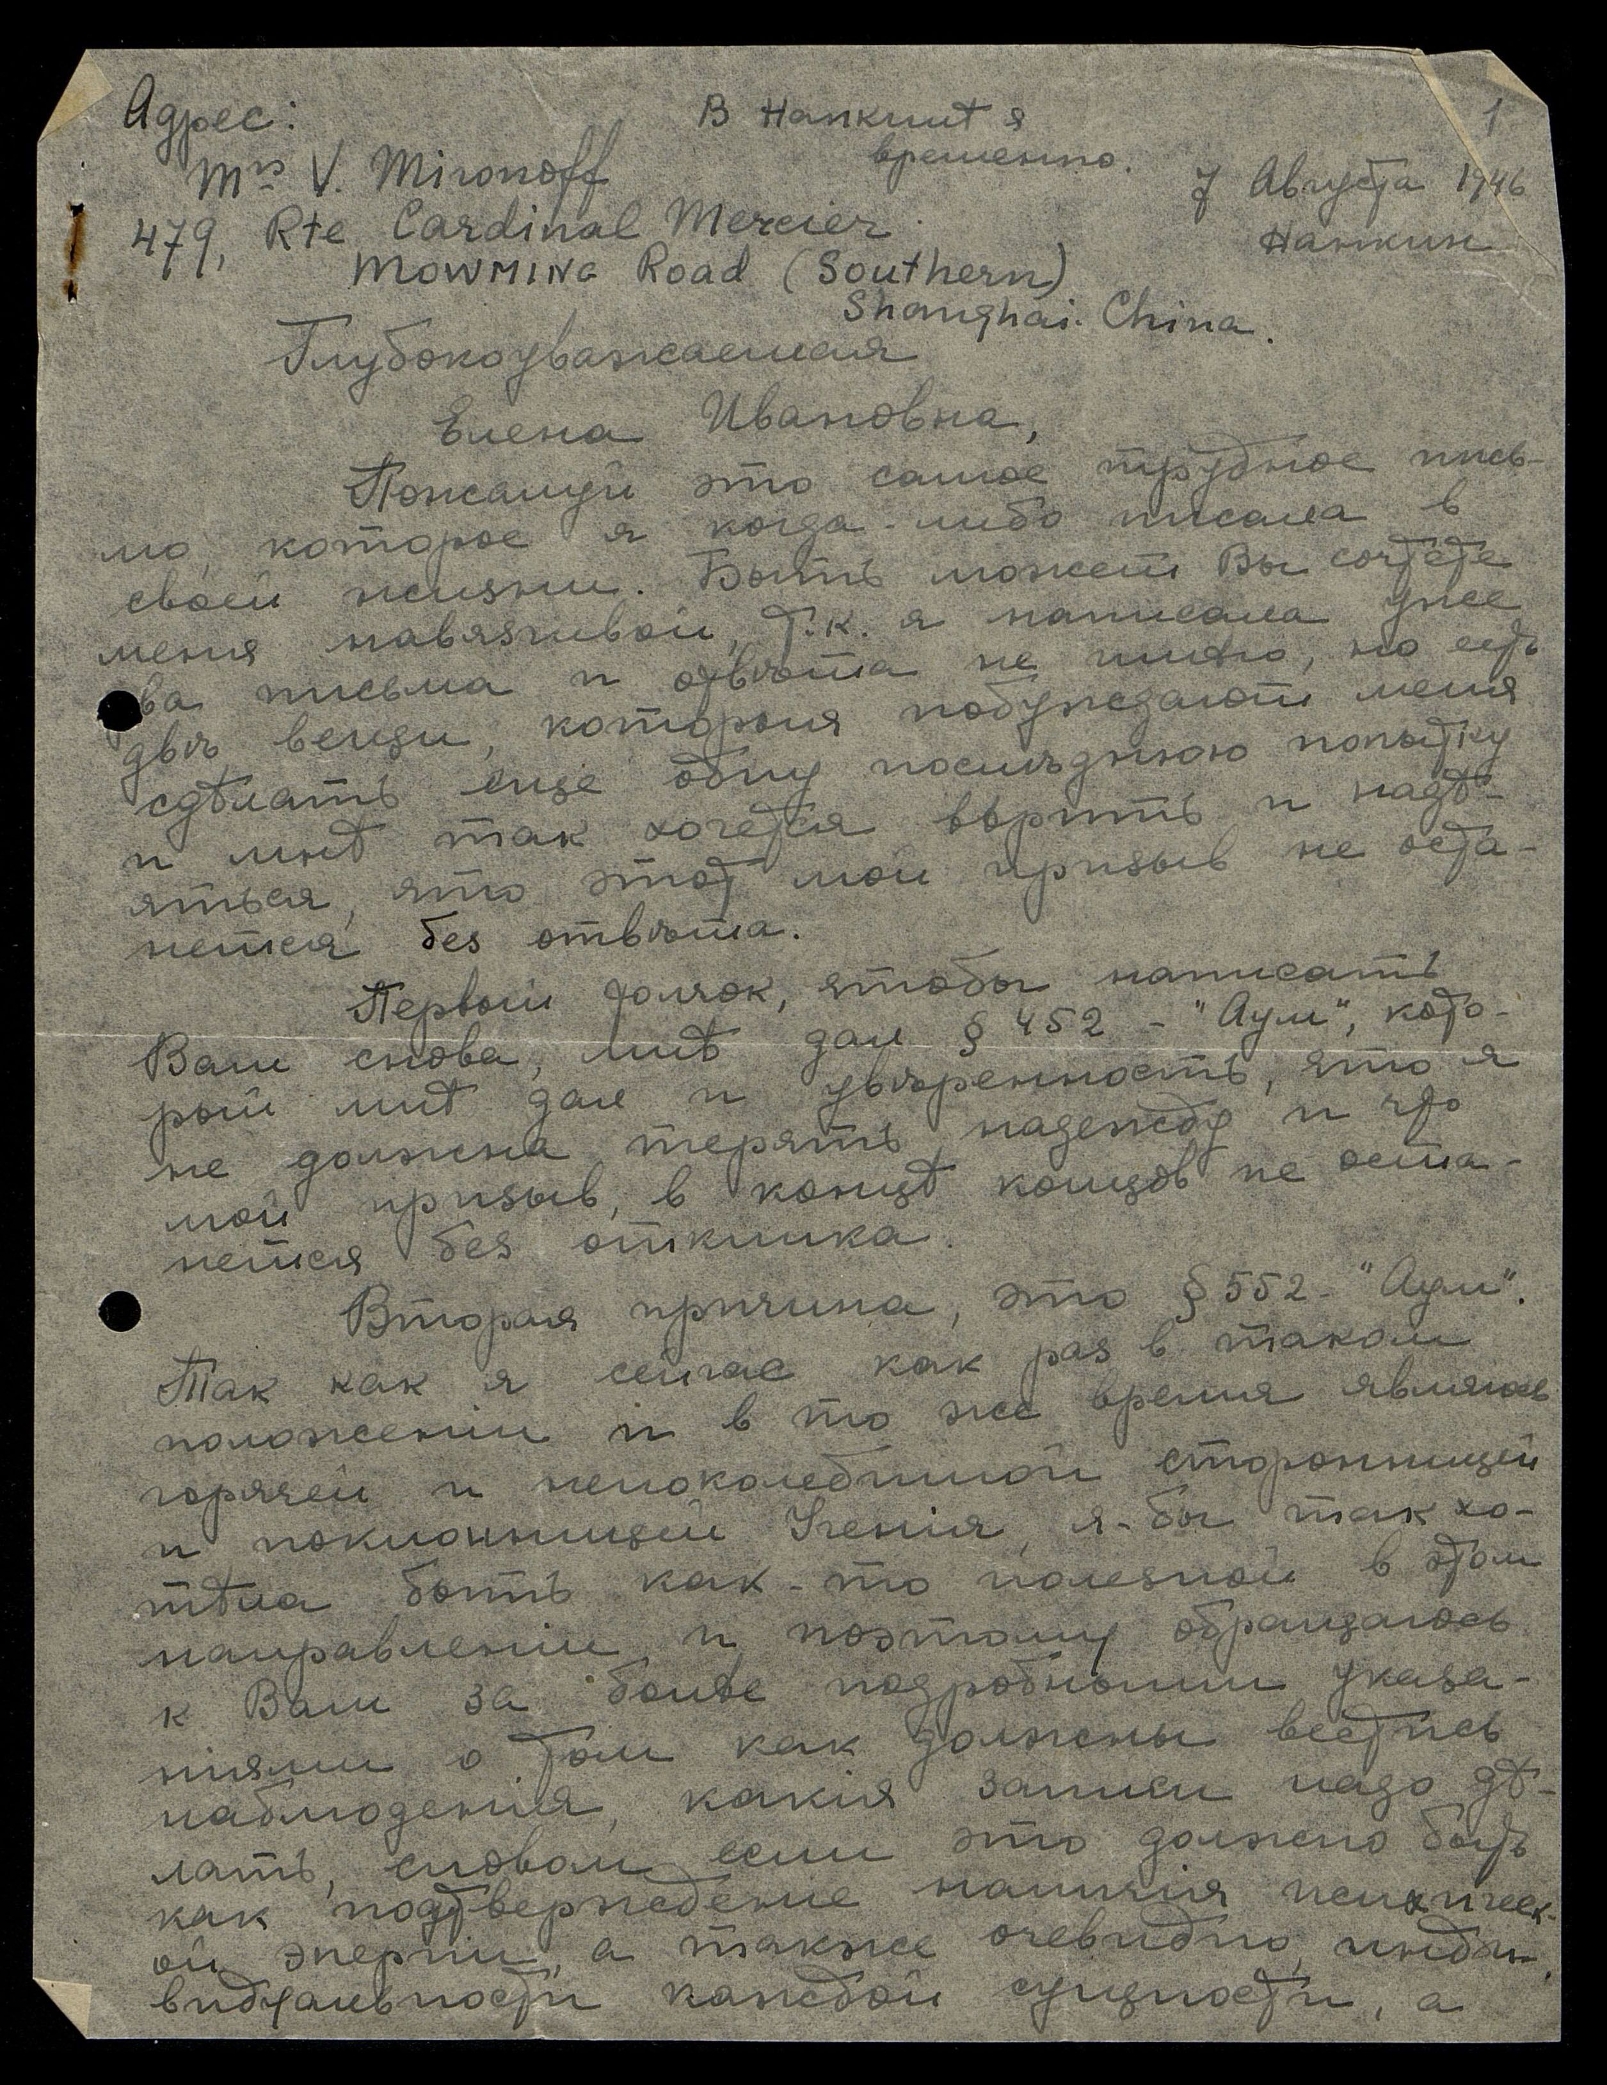 Адрес:
В Нанкинѣ я
временно.
1
Mrs V. Mironoff
7 Августа 1946
479, Rte Cardinal Mercier.
Нанкин
MOWMING Road (Southern)
Shanghai. China.
Глубокоуважаемая
Елена Ивановна,
Пожалуй это самое трудное пись-
мо, которое я когда-либо писала в
своей жизни. Быть может Вы сочтете
меня навязчивой, т.к. я написала уже
два письма и отвѣта не имѣю, но есть
двѣ вещи, которыя побуждают меня
сдѣлать еще одну послѣднюю попытку
и мнѣ так хочется вѣрить и надѣ-
яться, что этот мой призыв не оста-
нется без отвѣта.
Первый толчок, чтобы написать
Вам снова, мнѣ дал § 452 - "Аум", кото-
рый мнѣ дал и увѣренность, что я
не должна терять надежду и что
мой призыв, в концѣ концов не оста-
нется без отклика.
Вторая причина, это § 552 - "Аум".
Так как я сейчас как раз в таком
положеніи и в то же время являюсь
горячей и непоколебимой сторонницей
и поклонницей Ученія, я-бы так хо-
тѣла быть как-то полезной в этом
направленіи и поэтому обращаюсь
к Вам за болѣе подробными указа-
ніями о том как должны вестись
наблюденія, какія записи надо дѣ-
лать, словом если это должно быть
как подтвержденіе наличія психическ-
ой энергіи, а также очевидно, инди-
видуальности каждой сущности, а